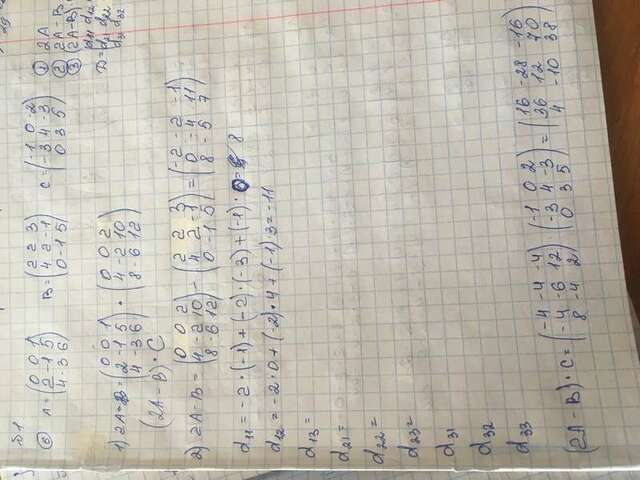 №1
⑥ A = (0 0 1 / 2 -1 5 / 4 -3 6) B = (2 2 3 / 4 2 -1 / 0 -1 5) C = (-1 0 -2 / -3 4 -3 / 0 3 5)
① 2A
② 2A - B
③ (2A-B)
D = d11 d12 / d21 d22 / d31 d32
1) 2A = 2 (0 0 1 / 2 -1 5 / 4 -3 6) · (0 0 2 / 4 -2 10 / 8 -6 12)
(2A-B) · C
2) 2A-B = (0 0 2 / 4 -2 10 / 8 -6 12) - (2 2 3 / 4 2 -1 / 0 -1 5) = (-2 -2 -1 / 0 -4 11 / 8 -5 7)
d11 = -2·(-1)+(-2)·(-3)+(-1)·0= 8
d12 = -2·0+(-2)·4+(-1)·3=-11
d13 =
d21 =
d22 =
d23 =
d31
d32
d33
(2A-B)·C = (-4 -4 -4 / -4 -6 12 / 8 -4 2) (-1 0 2 / -3 4 -3 / 0 3 5) = (16 -28 -16 / 36 12 70 / 4 -10 38)